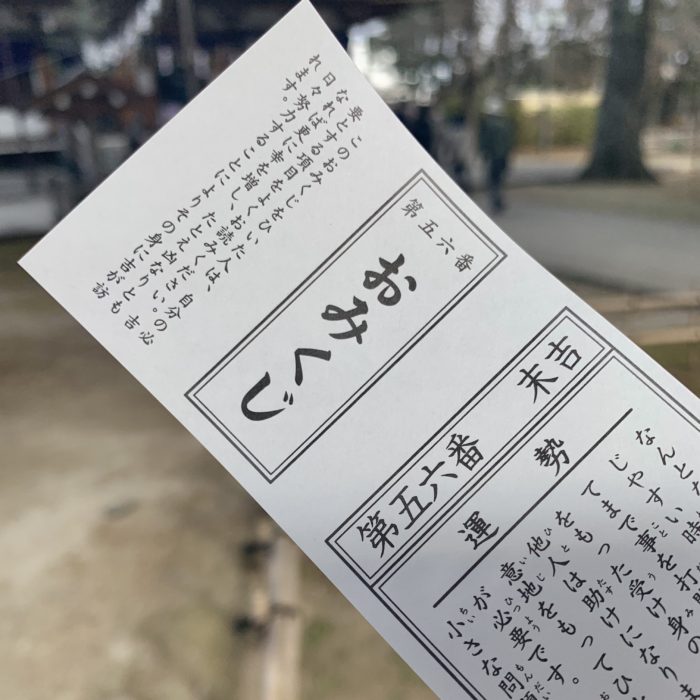 このおみくじをひいた人は、自分の必
要とする項目をよくお読みください。吉
なれば更に幸を増し、たとえ凶なりとも
日々努力することによりその身に吉が訪
れます。
第五六番
おみくじ
第五六番 末吉
運勢
なんと
じやすい時
てまで事を打
をもった受け身の
他人は助けになり
意地をもってひ
が必要です。
小さな問